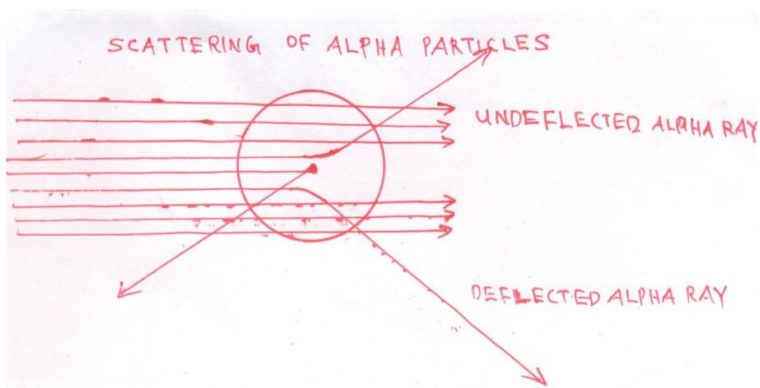 SCATTERING OF ALPHA PARTICLES
UNDEFLECTED ALPHA RAY
DEFLECTED ALPHA RAY